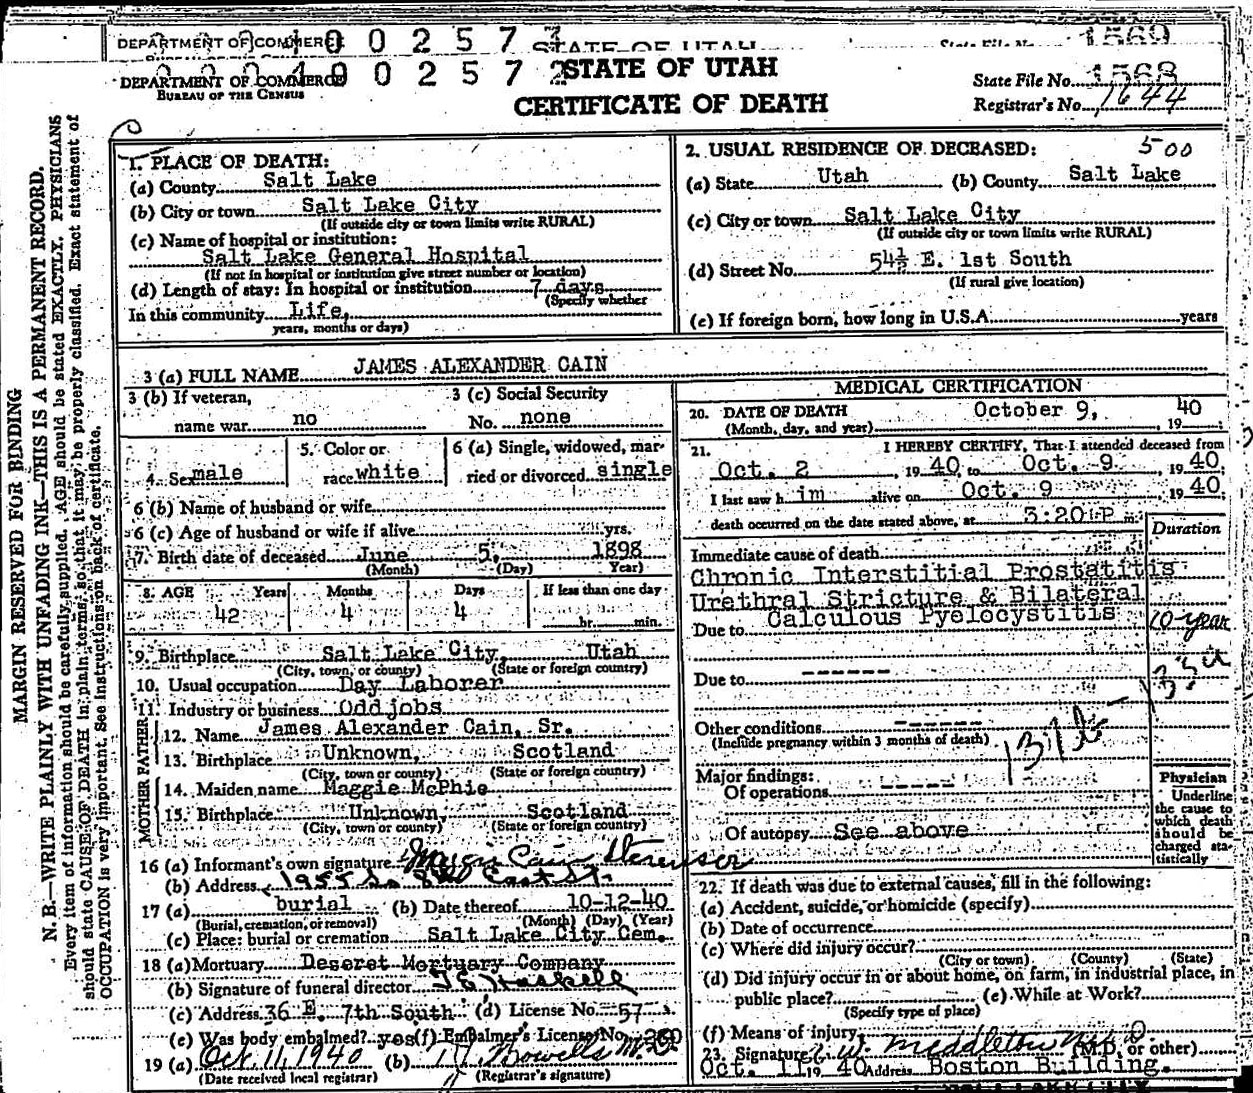 DEPARTMENT OF COMMERCE 0 0 2 5 7 STATE OF UTAH State File No. 1569
DEPARTMENT OF COMMERCE 0 0 2 5 7 2 STATE OF UTAH State File No. 1568
BUREAU OF THE CENSUS CERTIFICATE OF DEATH Registrar's No. 1644
MARGIN RESERVED FOR BINDING
N. B.—WRITE PLAINLY WITH UNFADING INK—THIS IS A PERMANENT RECORD.
Every item of information should be carefully supplied. AGE should be stated EXACTLY. PHYSICIANS
should state CAUSE OF DEATH in plain terms, so that it may be properly classified. Exact statement of
OCCUPATION is very important. See instructions on back of certificate.
1. PLACE OF DEATH:
(a) County Salt Lake
(b) City or town Salt Lake City
(If outside city or town limits write RURAL)
(c) Name of hospital or institution:
Salt Lake General Hospital
(If not in hospital or institution give street number or location)
(d) Length of stay: In hospital or institution 7 days
(Specify whether
In this community Life,
years, months or days)
2. USUAL RESIDENCE OF DECEASED: 500
(a) State Utah (b) County Salt Lake
(c) City or town Salt Lake City
(If outside city or town limits write RURAL)
(d) Street No. 54½ E. 1st South
(If rural give location)
(e) If foreign born, how long in U.S.A. years
3 (a) FULL NAME JAMES ALEXANDER CAIN
3 (b) If veteran, 3 (c) Social Security
name war no No. none
4. Sex male 5. Color or race white 6 (a) Single, widowed, married or divorced single
6 (b) Name of husband or wife
6 (c) Age of husband or wife if alive yrs.
7. Birth date of deceased June 5, 1898
(Month) (Day) Year)
8. AGE Years Months Days If less than one day
42 4 4 hr. min.
9. Birthplace Salt Lake City, Utah
(City, town, or county) (State or foreign country)
10. Usual occupation Day Laborer
11. Industry or business Odd jobs
FATHER
12. Name James Alexander Cain, Sr.
13. Birthplace Unknown, Scotland
(City, town or county) (State or foreign country)
MOTHER
14. Maiden name Maggie McPhie
15. Birthplace Unknown, Scotland
(City, town or county) (State or foreign country)
16 (a) Informant's own signature Cain Stevenson
(b) Address 1955 So East St.
17 (a) burial (b) Date thereof 10-12-40
(Burial, cremation, or removal) (Month) (Day) (Year)
(c) Place: burial or cremation Salt Lake City Cem.
18 (a) Mortuary Deseret Mortuary Company
(b) Signature of funeral director
(c) Address 36 E. 7th South (d) License No. 57
(e) Was body embalmed? yes (f) Embalmer's License No.
19 (a) Oct. 11, 1940 (b)
(Date received local registrar) (Registrar's signature)
MEDICAL CERTIFICATION
20. DATE OF DEATH October 9, 40
(Month, day, and year) , 19
21. I HEREBY CERTIFY, That I attended deceased from
Oct. 2 , 19 40, to Oct. 9 , 19 40.
I last saw h im alive on Oct. 9 , 19 40.
death occurred on the date stated above, at 3:20 P m.
Duration
Immediate cause of death
Chronic Interstitial Prostatitis
Urethral Stricture & Bilateral
Due to Calculous Pyelocystitis 10 year
Due to ------
Other conditions ------
(Include pregnancy within 3 months of death)
Major findings:
Of operations -----
Of autopsy See above
Physician
Underline
the cause to
which death
should be
charged sta-
tistically
22. If death was due to external causes, fill in the following:
(a) Accident, suicide, or homicide (specify)
(b) Date of occurrence
(c) Where did injury occur?
(City or town) (County) (State)
(d) Did injury occur in or about home, on farm, in industrial place, in
public place? (e) While at Work?
(Specify type of place)
(f) Means of injury
23. Signature Middleton M.D. (M.D. or other)
Oct. 11 19 40 Address Boston Building.